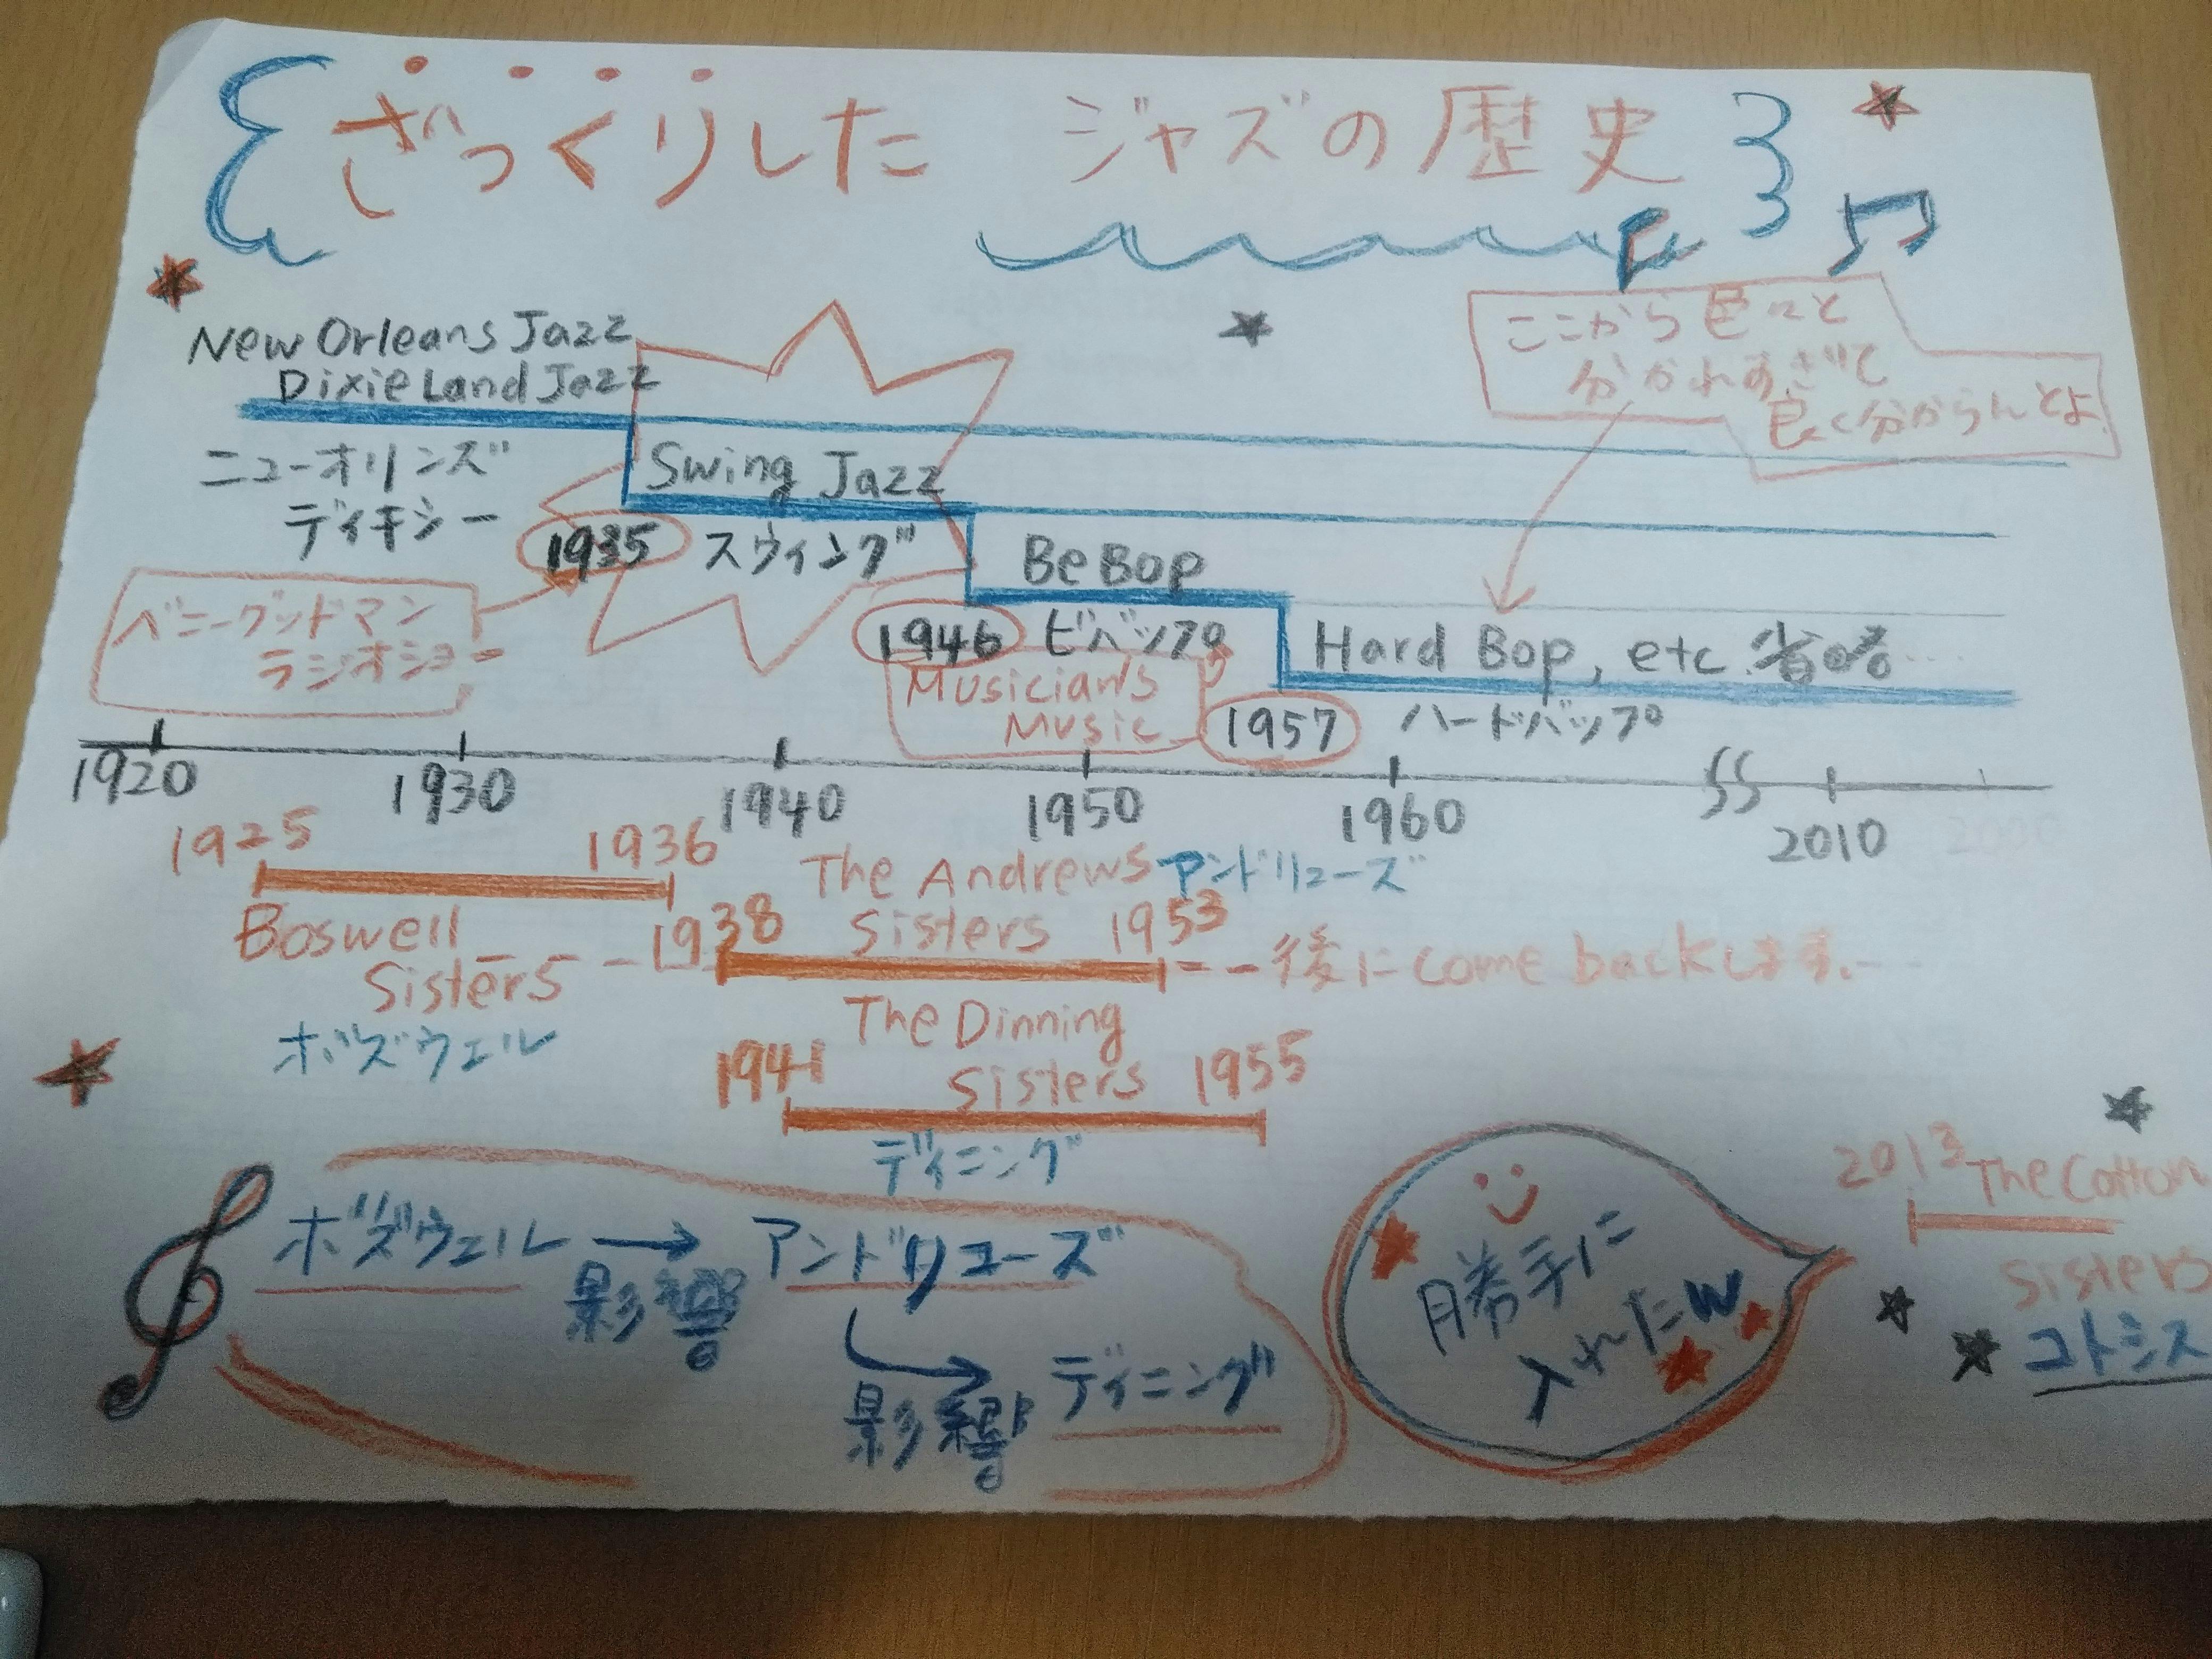 ざっくりした ジャズの歴史
ここから色々と
分かれすぎて
良く分からんとよ
New Orleans Jazz
Dixie Land Jazz
ニューオリンズ
ディキシー
Swing Jazz
1935 スウィング
ベニーグッドマン
ラジオショー
Be Bop
1946 ビバップ
Musician's
Music
Hard Bop, etc 省略…
1957 ハードバップ
1920 1930 1940 1950 1960 2010
1925 1936
Boswell
Sisters
ボズウェル
The Andrews アンドリューズ
Sisters
1938 1953
後にcome backします.
The Dinning
Sisters
1941 1955
ディニング
2013 The Cotton
Sisters
コトシス
勝手に
入れたw
ボズウェル → アンドリューズ
影響
影響 ディニング